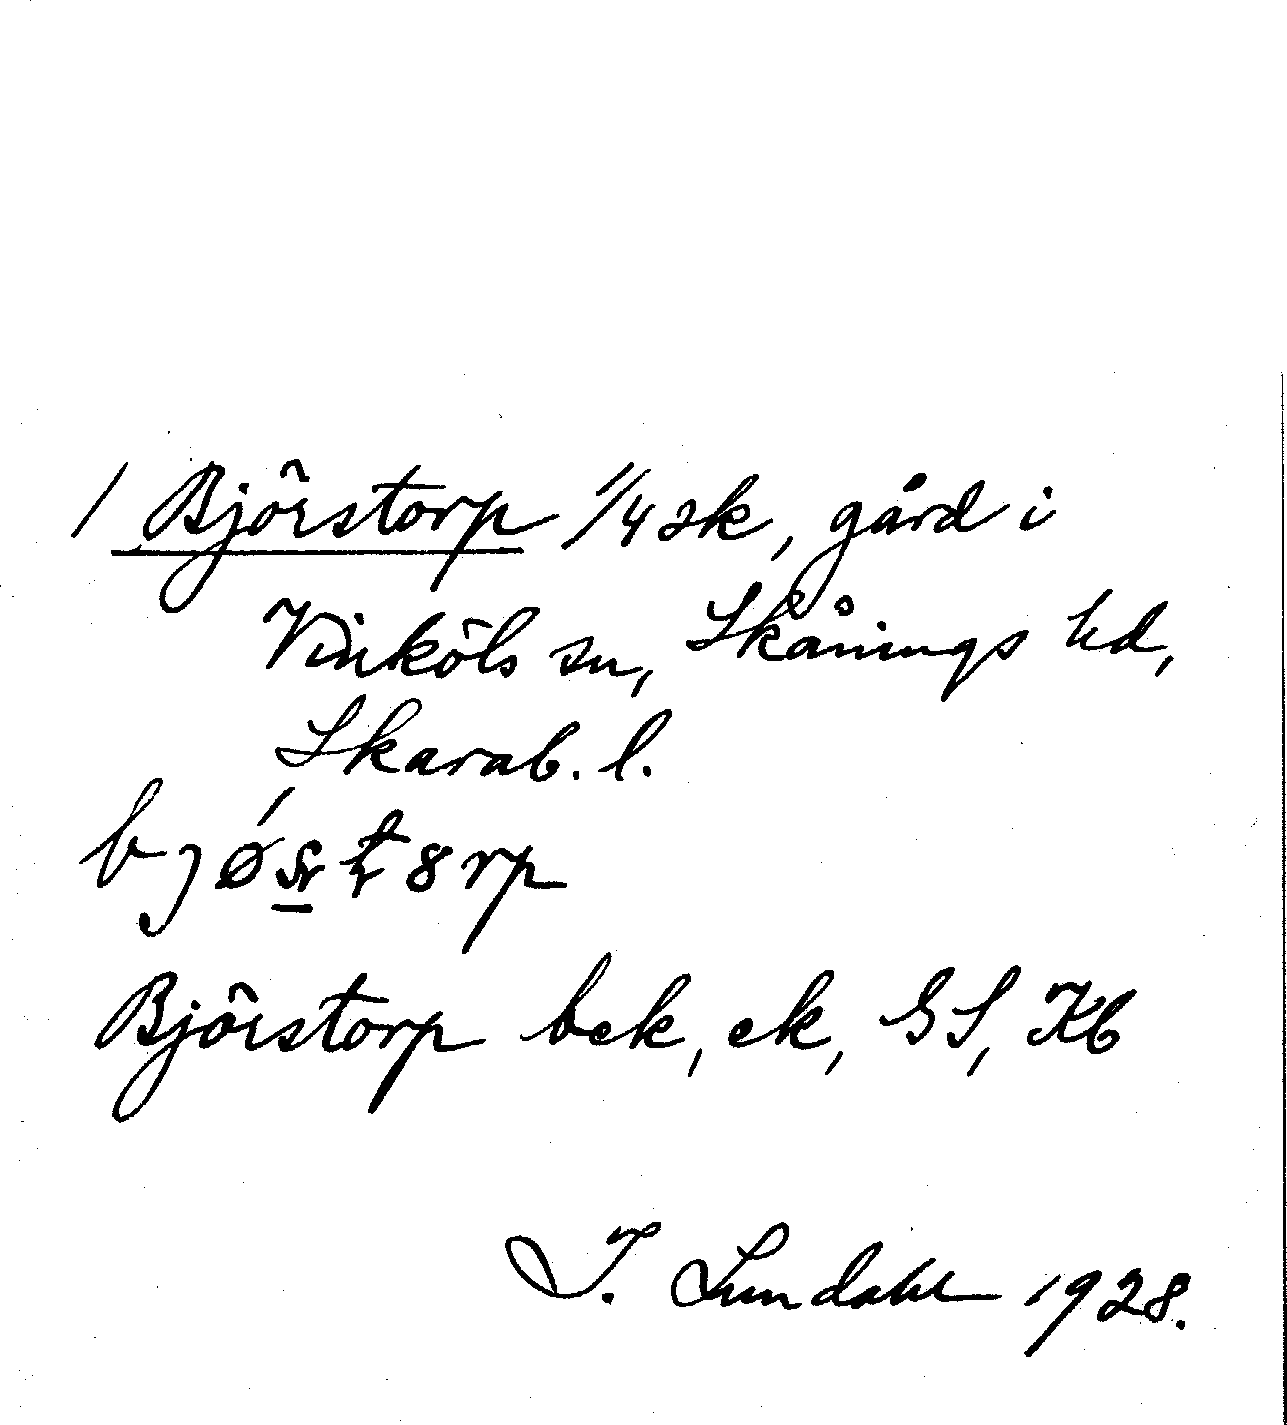 / Björstorp 1/4 sk, gård i
Vinköls sn, Skånings hd,
Skarab. l.
Björstorp bek, ek, GS, Kb
I. Lundahl 1928.